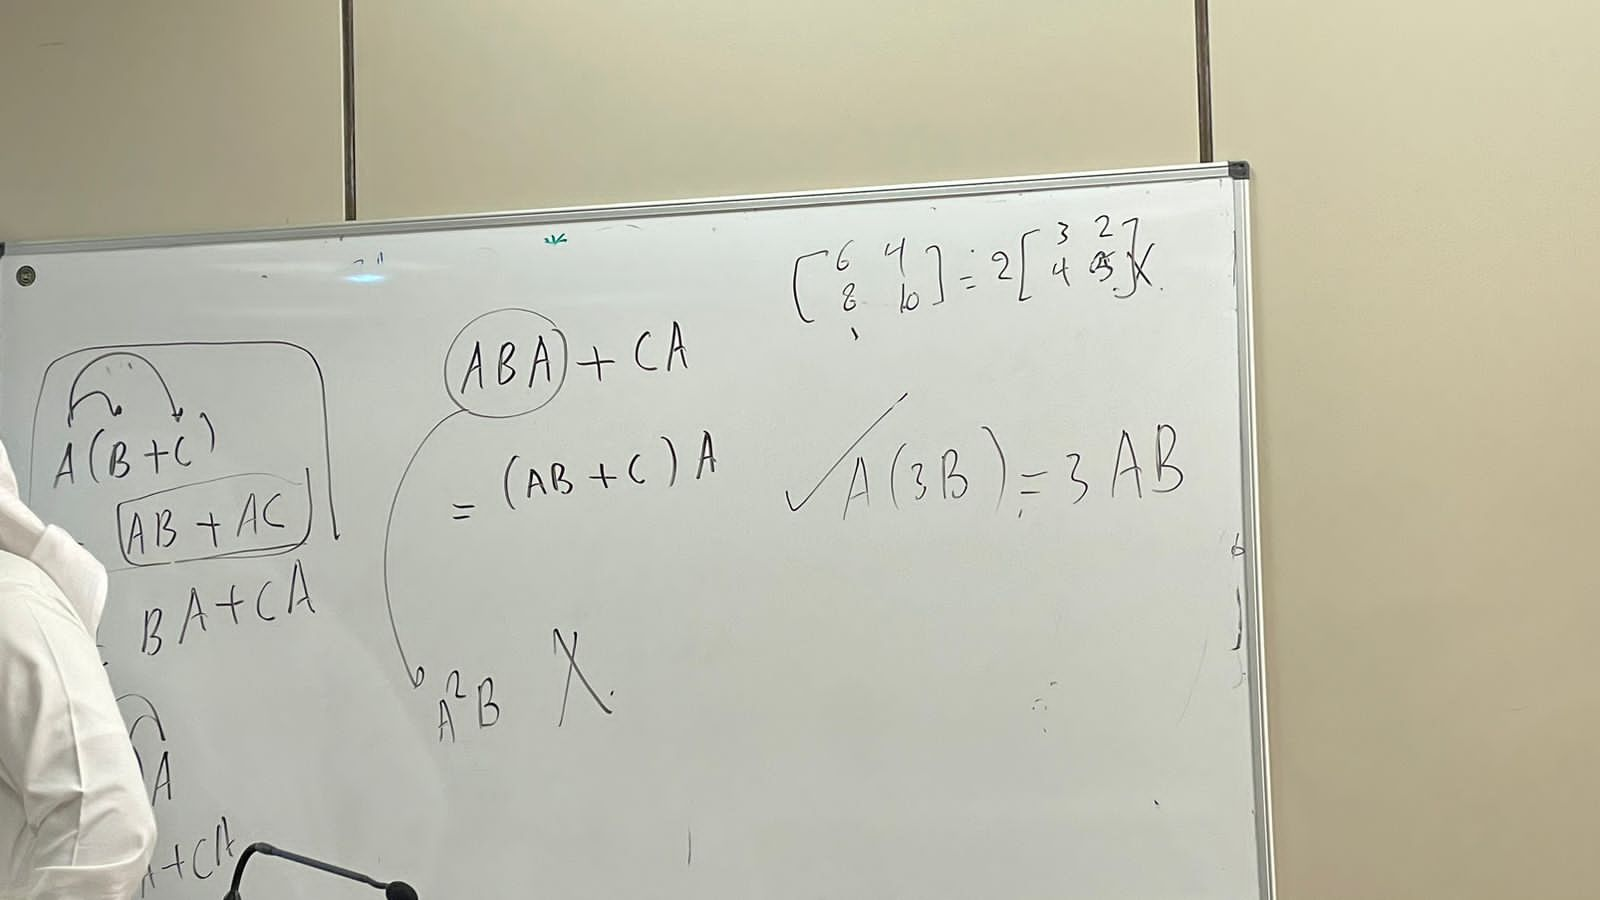 A(B+C)
AB + AC
BA+CA
A
+CA
ABA + CA
= (AB + C) A
A²B X
[6 4
8 10] = 2 [3 2
4 5] X
✓ A(3B) = 3AB